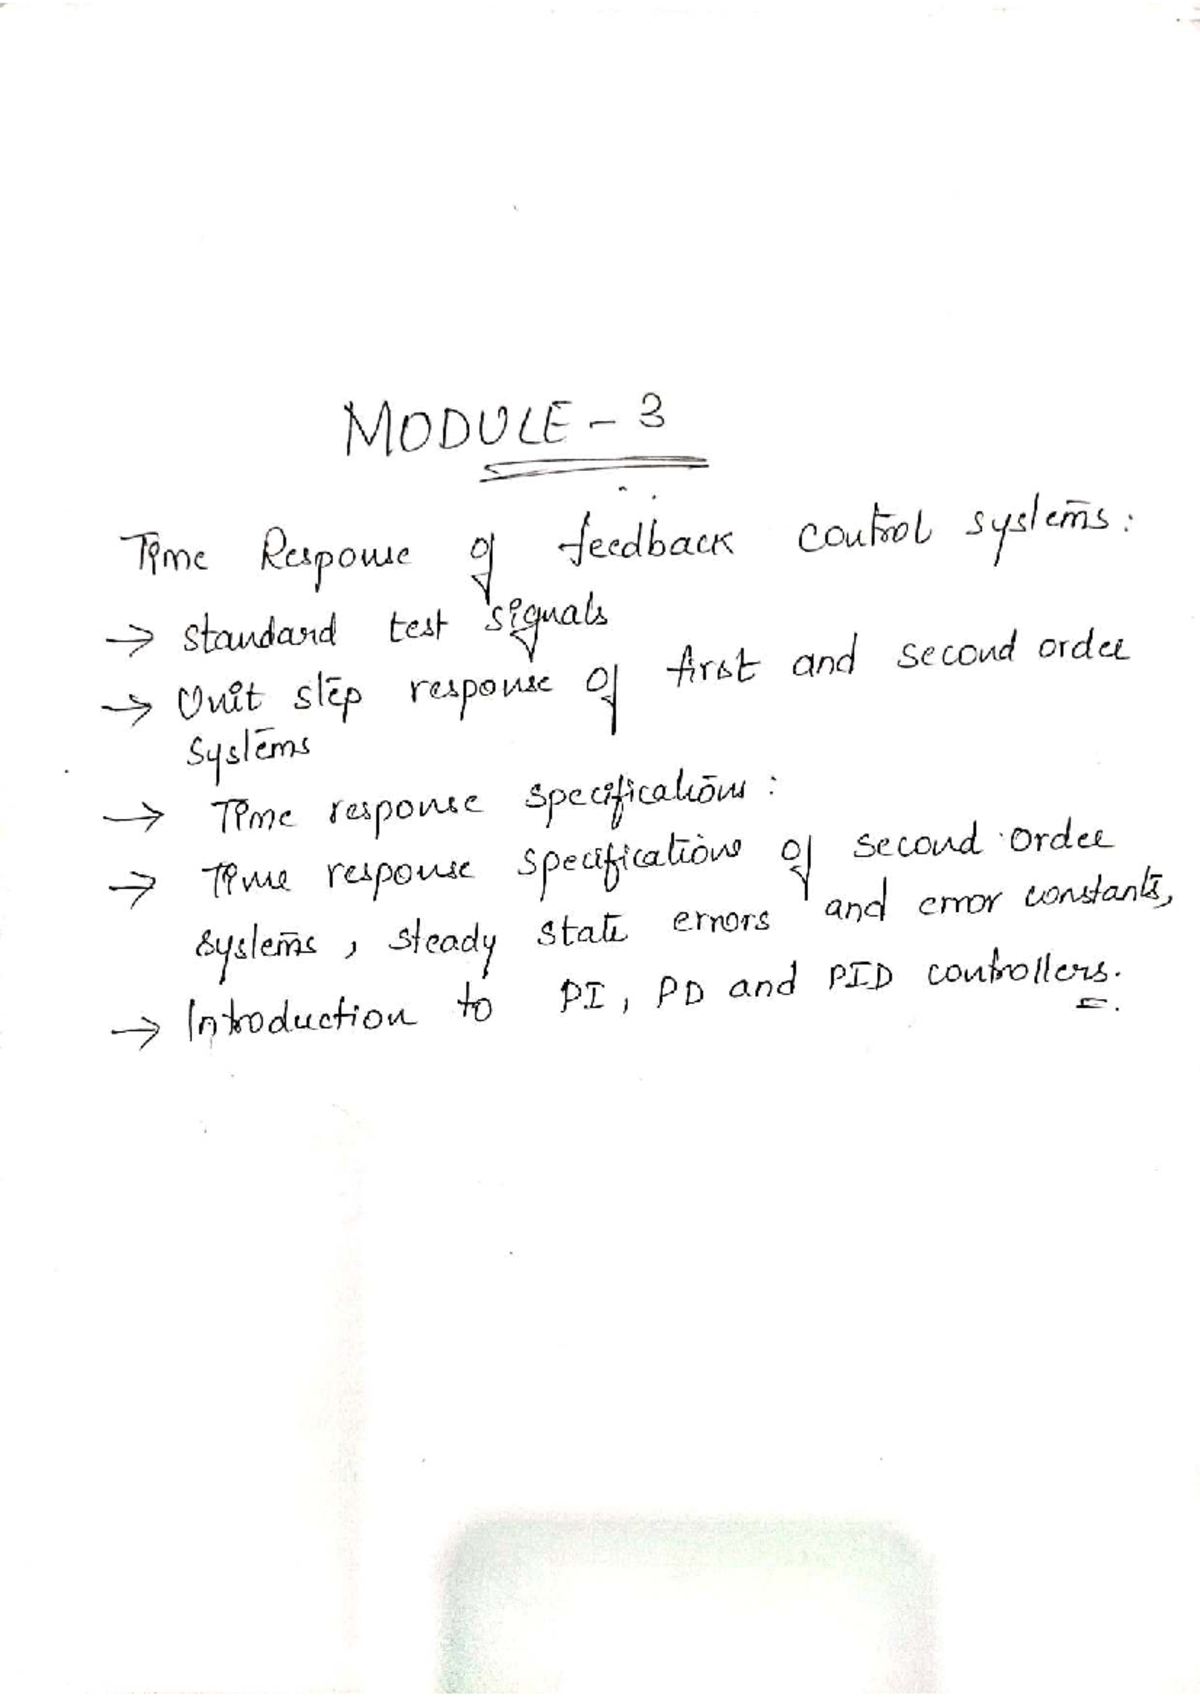 MODULE - 3
Time Response of feedback control systems:
→ standard test signals
→ Unit step response of first and second order
systems
→ Time response specifications:
→ Time response specifications of second order
systems, steady state errors and error constants,
→ Introduction to PI, PD and PID controllers.